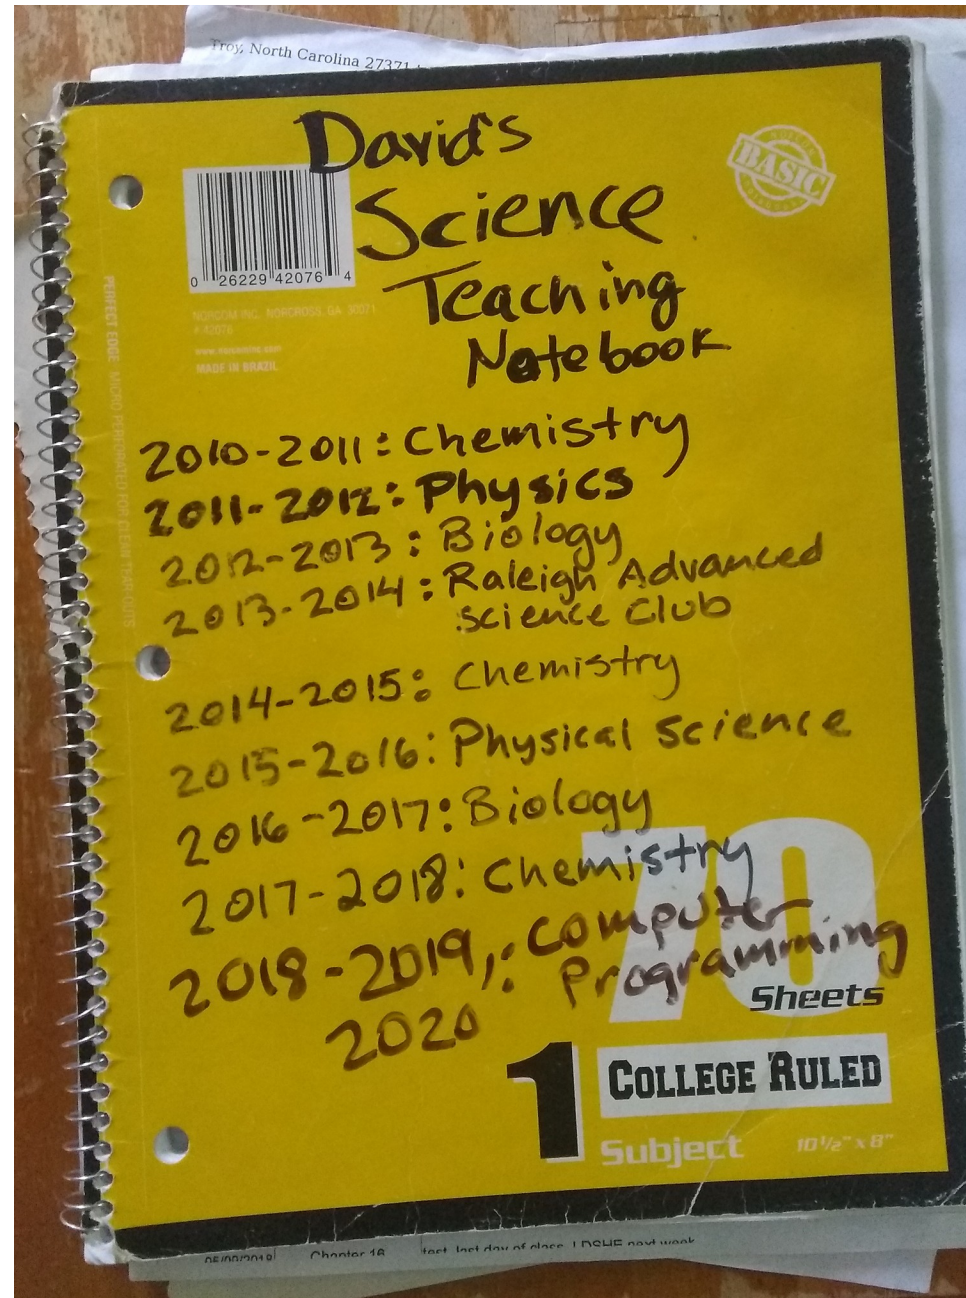 Troy, North Carolina 27371
David's
Science
Teaching
Notebook
BASIC
0 26229 42076 4
NORCOM INC. NORCROSS, GA 30071
# 42076
www.norcominc.com
MADE IN BRAZIL
PERFECT EDGE MICRO PERFORATED FOR CLEAN TEAR-OUTS
2010-2011: Chemistry
2011-2012: Physics
2012-2013: Biology
2013-2014: Raleigh Advanced
science Club
2014-2015: Chemistry
2015-2016: Physical science
2016-2017: Biology
2017-2018: Chemistry
2018-2019,: Computer
2020 Programming
70
Sheets
1
COLLEGE RULED
Subject 10 1/2" x 8"
Chapter 16 test, last day of class, LDSHE next week